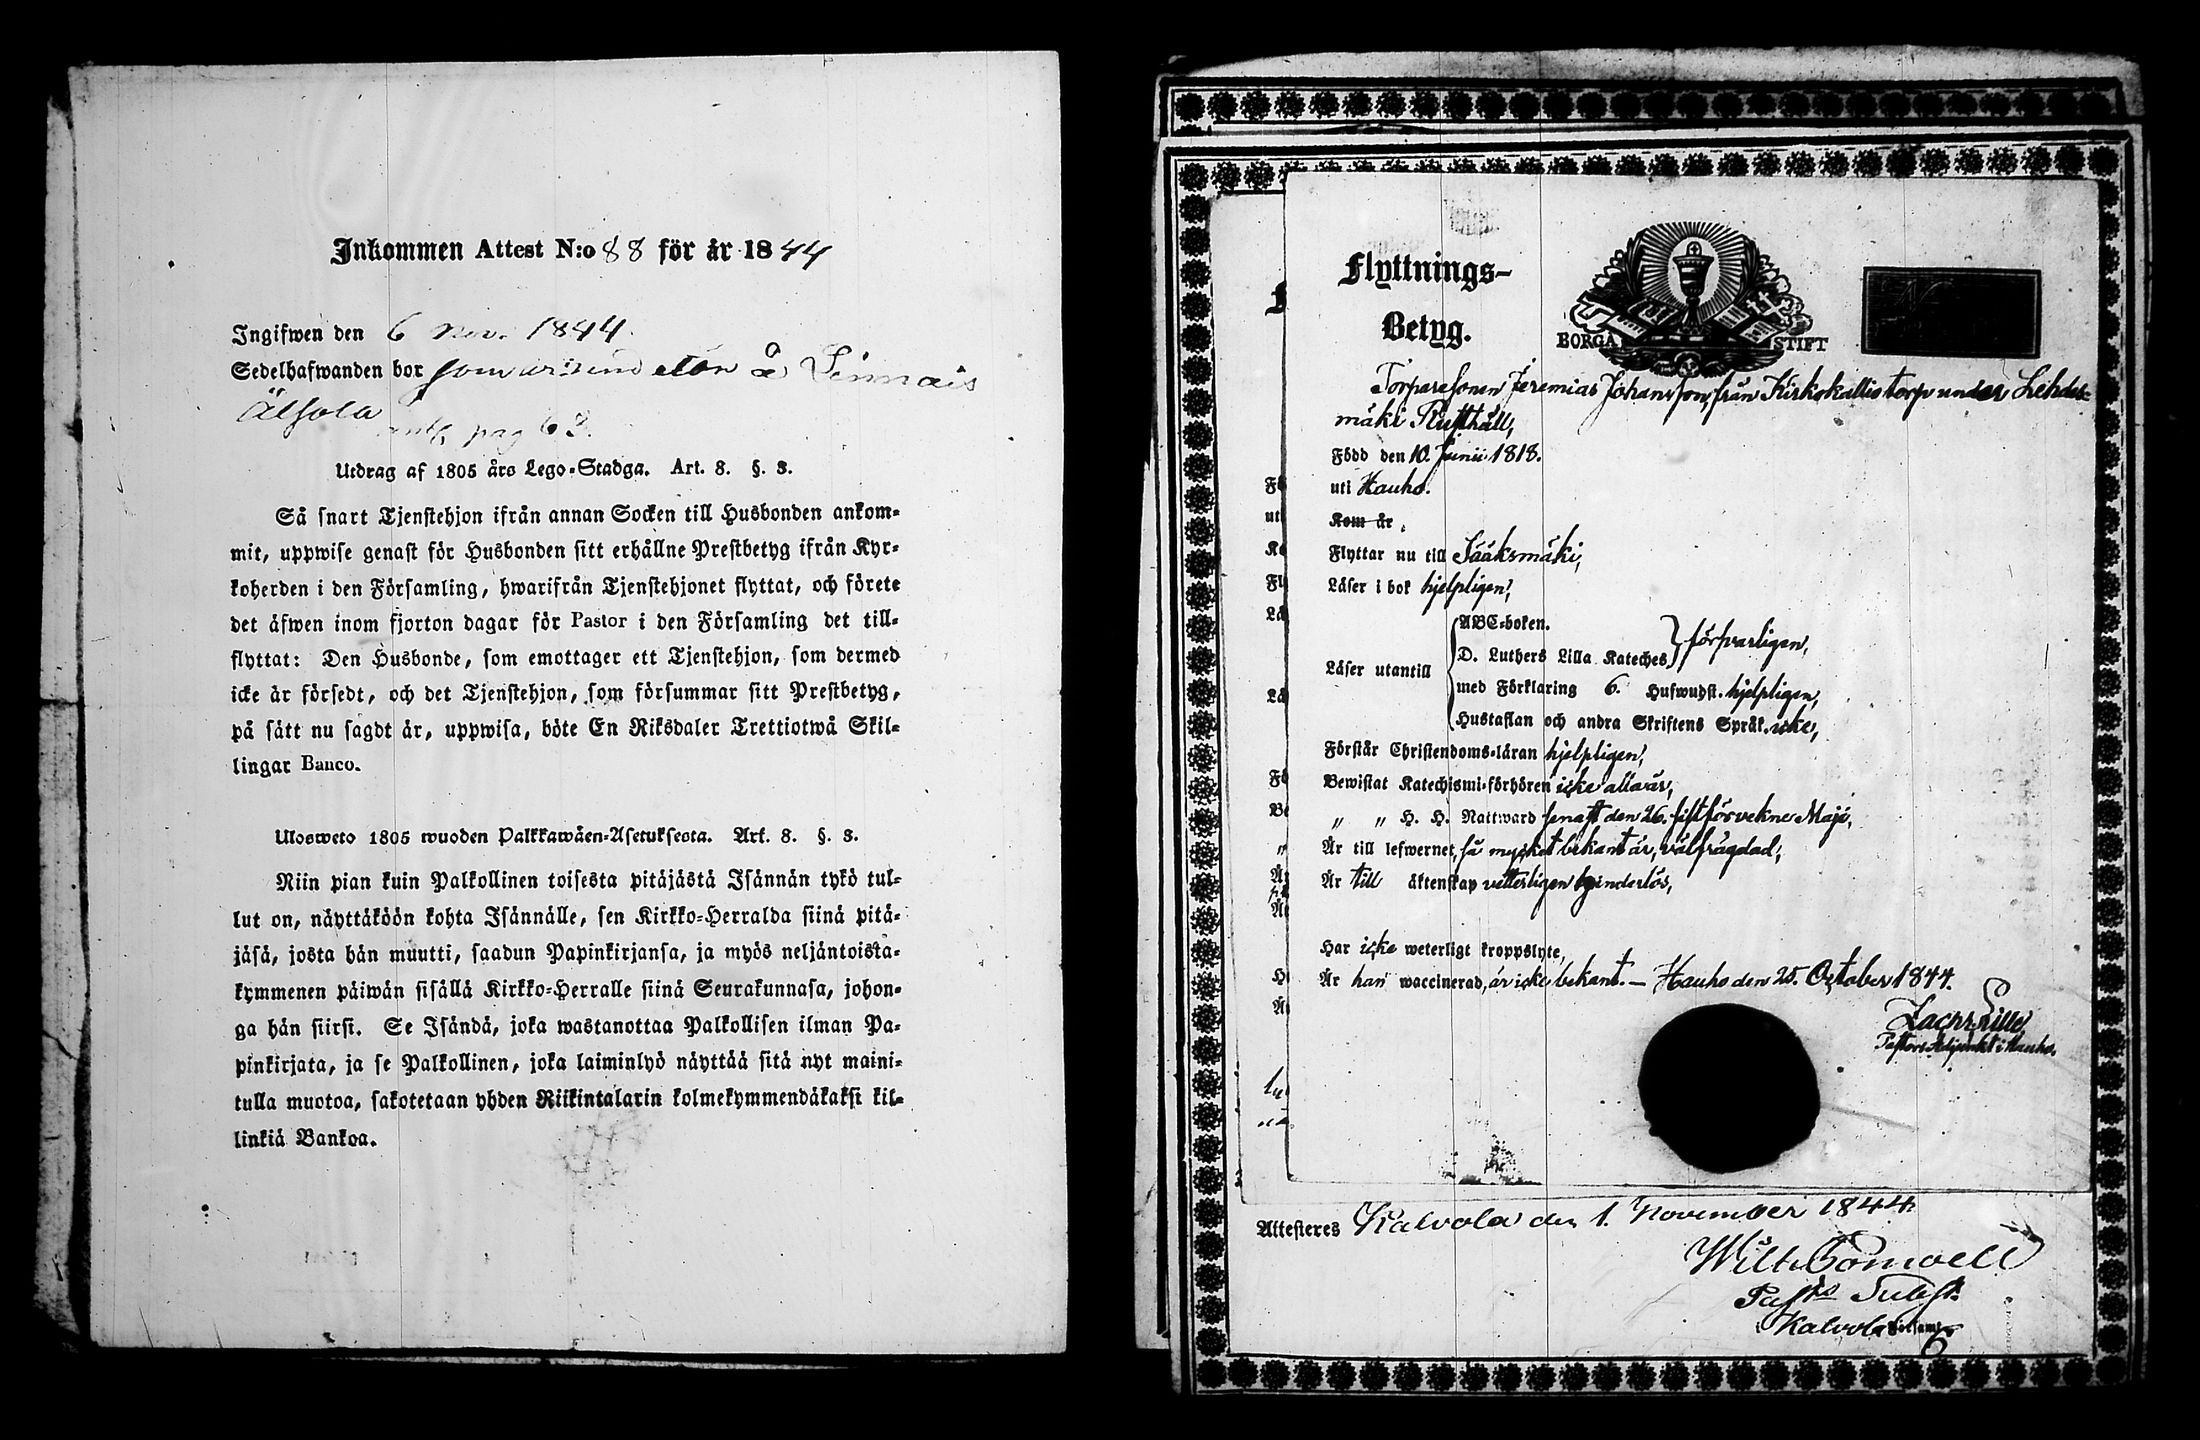 Inkommen Attest N:o 88 för år 1844
Ingifwen den 6 Nov. 1844.
Sedelhafwanden bor som å
Älsola
pag 63.
Utdrag af 1805 års Lego-Stadga. Art. 8. §. 3.
Så snart Tjenstehjon ifrån annan Socken till Husbonden ankom-
mit, uppwise genast för Husbonden sitt erhållne Prestbetyg ifrån Kyr-
koherden i den Församling, hwarifrån Tjenstehjonet flyttat, och förete
det äfwen inom fjorton dagar för Pastor i den Församling det till-
flyttat: Den Husbonde, som emottager ett Tjenstehjon, som dermed
icke är försedt, och det Tjenstehjon, som försummar sitt Prestbetyg,
på sätt nu sagdt är, uppwisa, böte En Riksdaler Trettiotwå Skil-
lingar Banco.
Ulosweto 1805 wuoden Palkkawäen-Asetuksesta. Art. 8. §. 3.
Niin pian kuin Palkollinen toisesta pitäjästä Isännän tykö tul-
lut on, näyttäköön kohta Isännälle, sen Kirkko-Herralda siinä pitä-
jäsä, josta hän muutti, saadun Papinkirjansa, ja myös neljäntoista-
kymmenen päiwän sisällä Kirkko-Herralle siinä Seurakunnasa, johon-
ga hän siirsi. Se Isändä, joka wastanottaa Palkollisen ilman Pa-
pinkirjata, ja se Palkollinen, joka laiminlyö näyttää sitä nyt maini-
tulla muotoa, sakotetaan yhden Riikintalarin kolmekymmendäkaksi kil-
linkiä Bankoa.
Flyttnings-
Betyg.
BORGÅ STIFT
Torparesonen Jeremias Johansson, från Kirkokallio torp under Lehdes-
mäki Rusthåll,
Född den 10. Junii 1818.
uti Hauho.
Kom år
Flyttar nu till Sääksmäki,
Läser i bok hjelpligen,
ABC-boken.
D. Luthers Lilla Kateches försvarligen,
Läser utantill
med Förklaring 6. Hufwudst. hjelpligen,
Hustaflan och andra Skriftens Språk icke,
Förstår Christendoms-läran hjelpligen,
Bewistat Katechismi-förhören icke alla år,
" " H. H. Nattward senast den 26. sistförvekne Maji,
Är till lefwernet, så mycket bekant är, välfrägdad,
Är till äktenskap vetterligen hinderlös,
Har icke weterligt kroppslyte,
Är han waccinerad, är icke bekant. — Hauho den 25. October 1844.
Zachr. Lille
Pastors Adjunkt i Hauho.
Attesteras Kalvola den 1. November 1844.
Past:s Subst.
i Kalvola Församl.